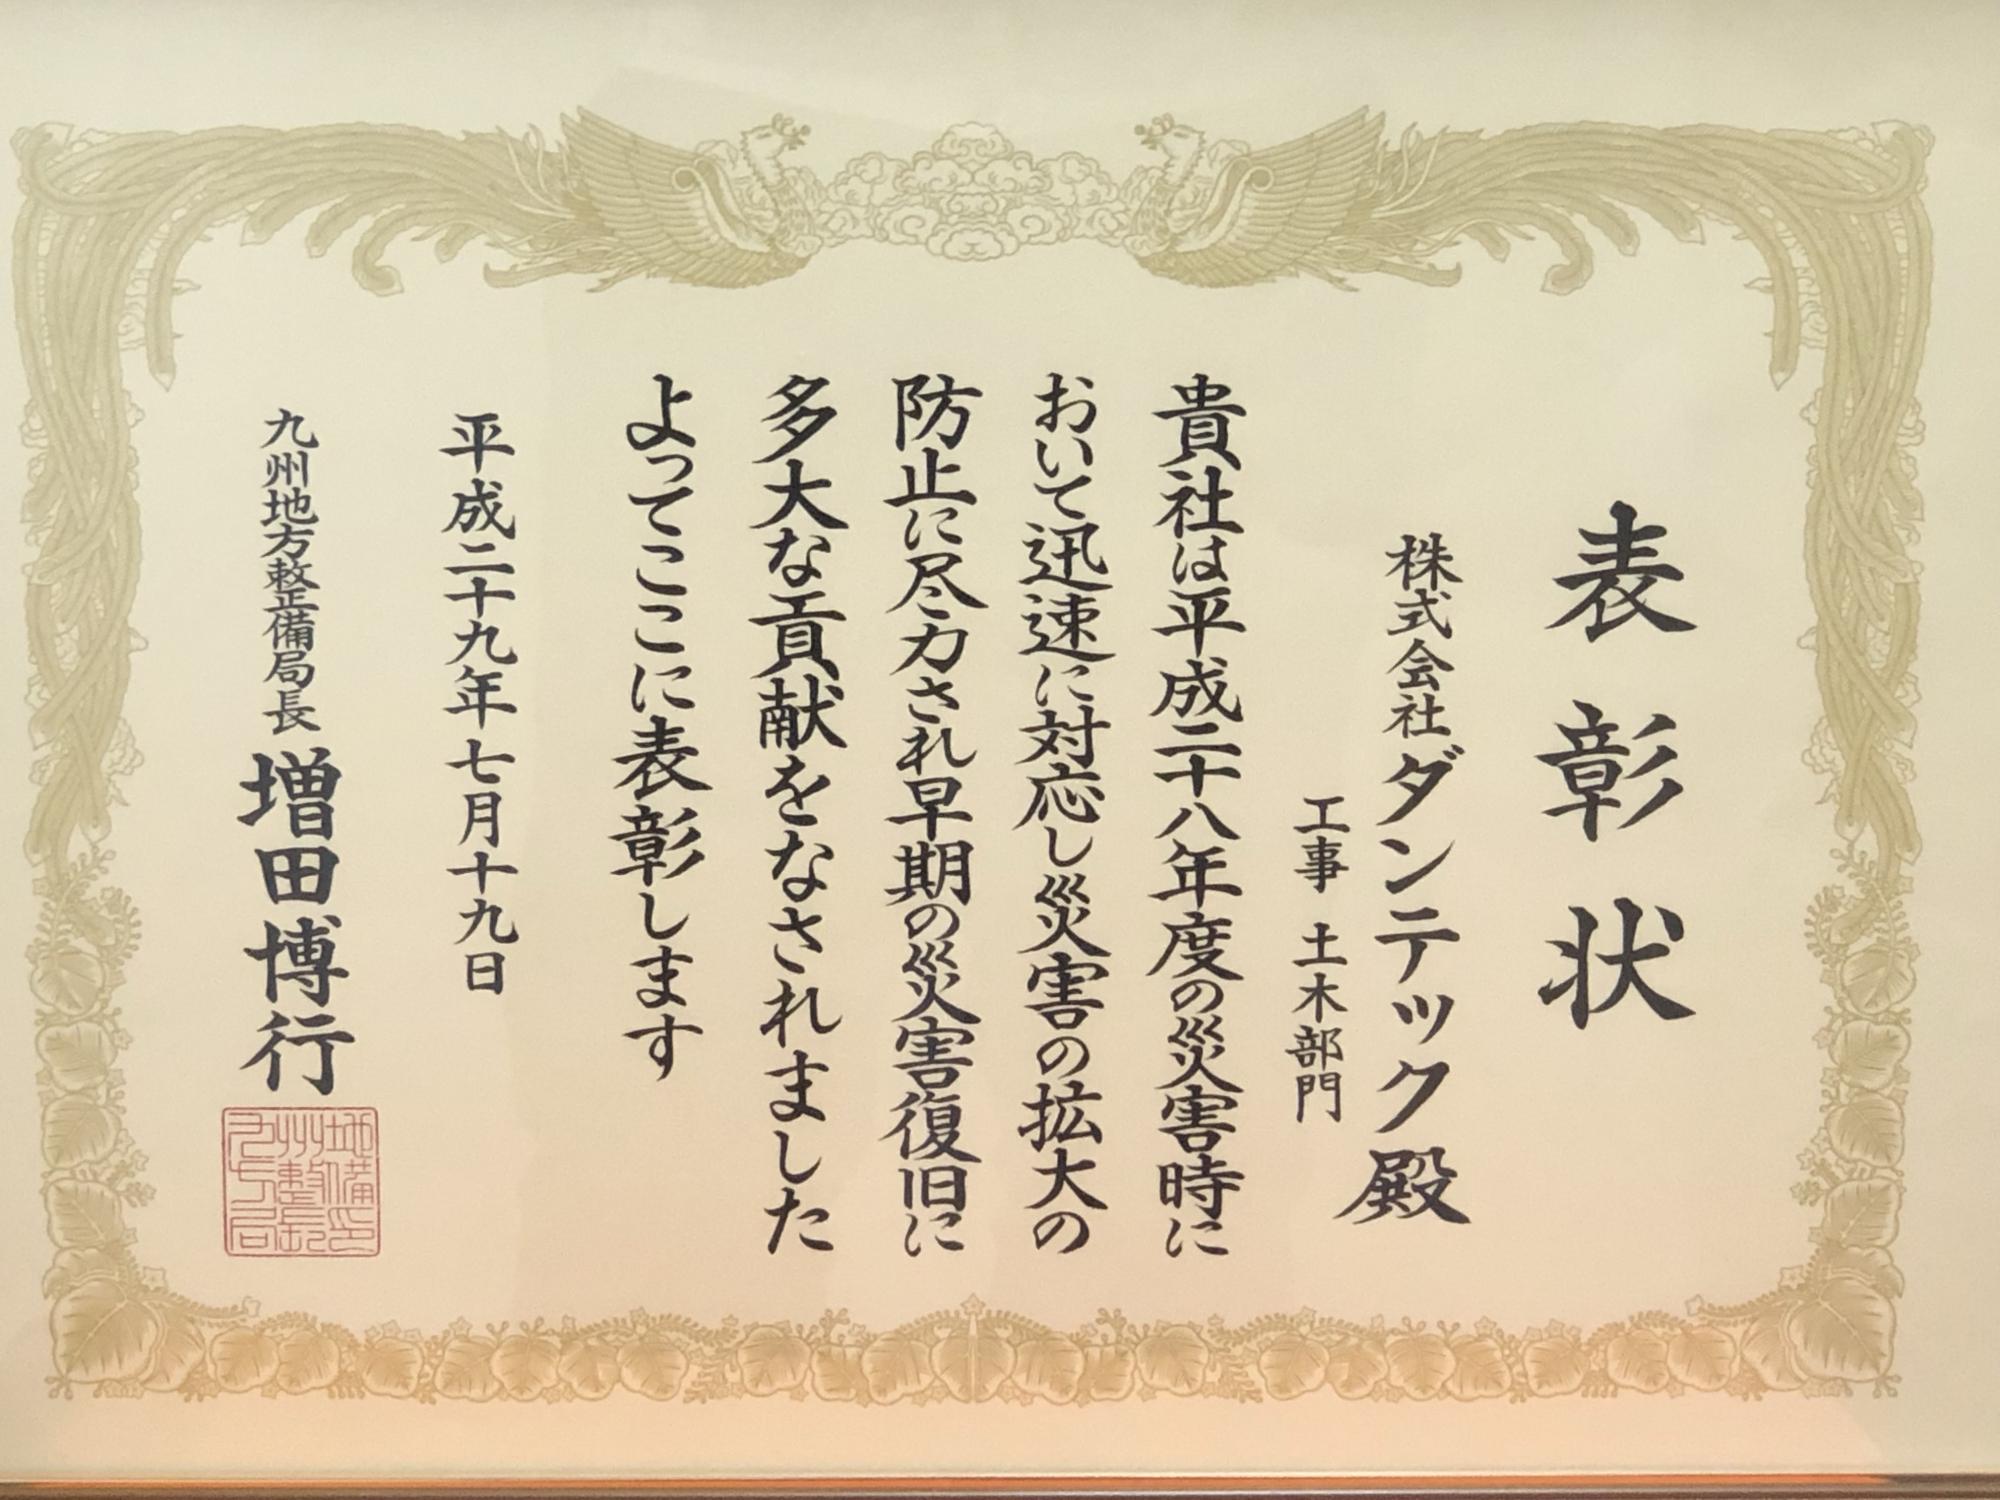 表彰状
株式会社ダンテック殿
工事 土木部門
貴社は平成二十八年度の災害時に
おいて迅速に対応し災害の拡大の
防止に尽力され早期の災害復旧に
多大な貢献をなされました
よってここに表彰します
平成二十九年七月十九日
九州地方整備局長 増田博行